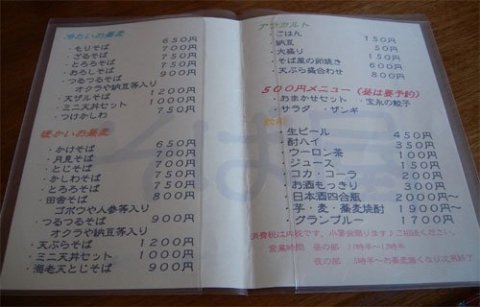 冷たいお蕎麦
・もりそば 650円
・ざるそば 700円
・とろろそば 750円
・おろしそば 750円
・つるつるそば 900円
オクラや納豆等入り
・天ザルそば 1200円
・ミニ天丼セット 1000円
・つけかしわ 750円
暖かいお蕎麦
・かけそば 650円
・月見そば 700円
・とじそば 700円
・かしわそば 750円
・とろろそば 750円
・田舎そば 800円
ゴボウや人参等入り
・つるつるそば 900円
オクラや納豆等入り
・天ぷらそば 1200円
・ミニ天丼セット 1000円
・海老天とじそば 900円
アラカルト
・ごはん 150円
・納豆 50円
・大盛り 150円
・そば屋の卵焼き 600円
・天ぷら盛合わせ 800円
500円メニュー(昼は要予約)
・おまかせセット ・宝永の餃子
・サラダ ・ザンギ
・生ビール 450円
・酎ハイ 350円
・ウーロン茶 100円
・ジュース 150円
・コカ・コーラ 200円
・お酒もっきり 300円
・日本酒四合瓶 2000円~
・芋・麦・蕎麦焼酎 1900円~
・グランブルー 1700円
消費税は内税です。小宴会賜ります♪ご相談ください。
営業時間 昼の部 11時半~
夜の部 5時半~お蕎麦無くなり次第終了